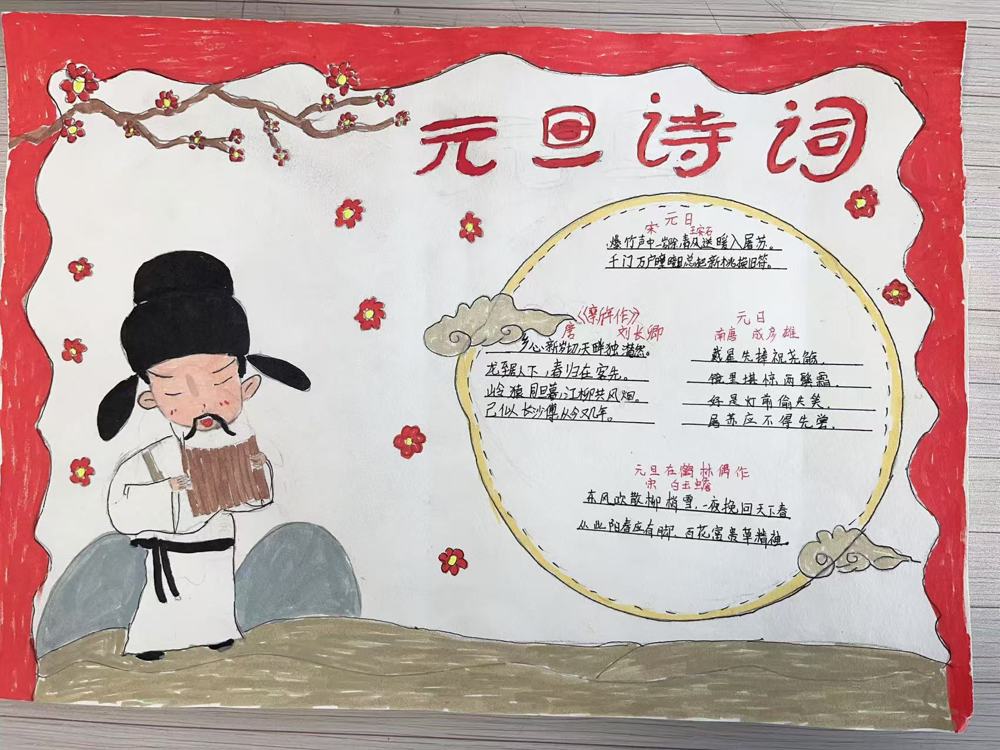 元旦诗词
元日
宋 王安石
爆竹声中一岁除,春风送暖入屠苏。
千门万户曈曈日总把新桃换旧符。
《新年作》
唐 刘长卿
乡心新岁切天畔独潸然。
龙至居人下,春归在客先。
岭猿同旦暮江柳共风烟。
已似长沙傅从今又几年。
元日
南唐 成彦雄
戴星先捧祝尧觞,
镜里堪惊两鬓霜,
好是灯前偷失笑,
屠苏应不得先尝,
元旦在鹤林偶作
宋 白玉蟾
东风吹散柳梢雪,一夜挽回天下春
从此阳春应有脚,百花富贵草精神。